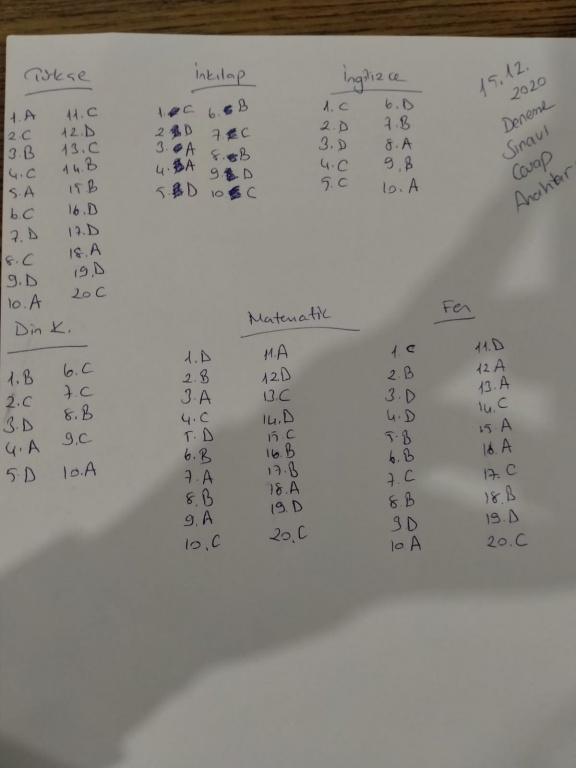 Türkçe
1.A 11.C
2.C 12.D
3.B 13.C
4.C 14.B
5.A 15B
6.C 16.D
7.D 17.D
8.C 18.A
9.D 19.D
10.A 20C
İnkılap
1.C 6.B
2.D 7.C
3.A 8.B
4.A 9.D
5.D 10.C
İngilizce
1.C 6.D
2.D 7.B
3.D 8.A
4.C 9.B
5.C 10.A
15.12.
2020
Deneme
Sınavı
Cevap
Anahtarı
Din K.
1.B 6.C
2.C 7.C
3.D 8.B
4.A 9.C
5.D 10.A
Matematik
1.D 11.A
2.B 12.D
3.A 13.C
4.C 14.D
5.D 15.C
6.B 16.B
7.A 17.B
8.B 18.A
9.A 19.D
10.C 20.C
Fen
1.C 11.D
2.B 12.A
3.D 13.A
4.D 14.C
5.B 15.A
6.B 16.A
7.C 17.C
8.B 18.B
9D 19.D
10A 20.C